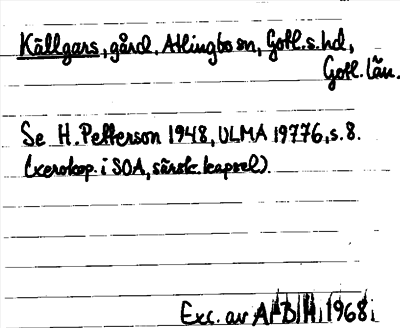 Källgars, gård, Atlingbo sn, Gotl.s.hd,
Gotl. län.
Se H. Petterson 1948, ULMA 19776, s. 8.
(xerokop. i SOA, särsk. kapsel).
Exc. av ABH, 1968.